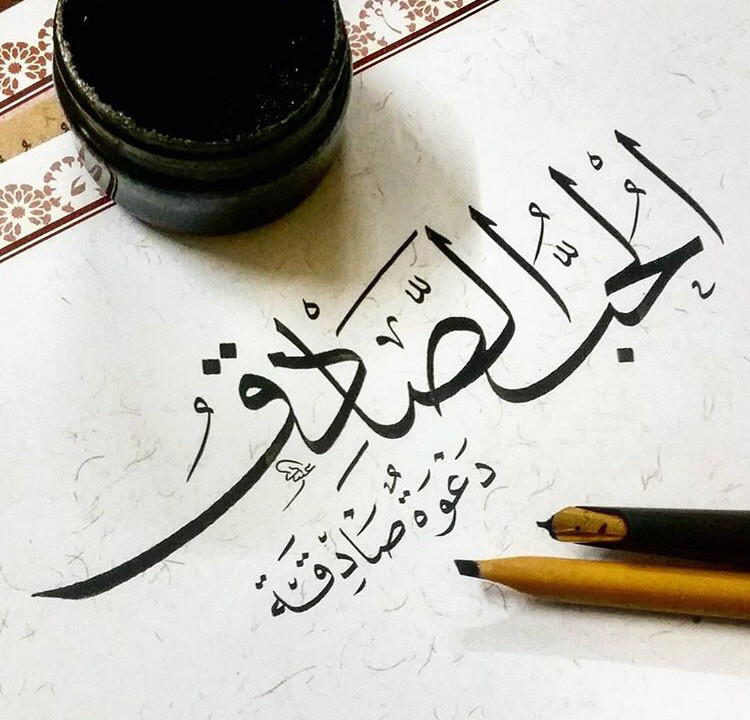 الْحُبُّ الصَّادِقُ
دَعْوَةٌ صَادِقَةٌ